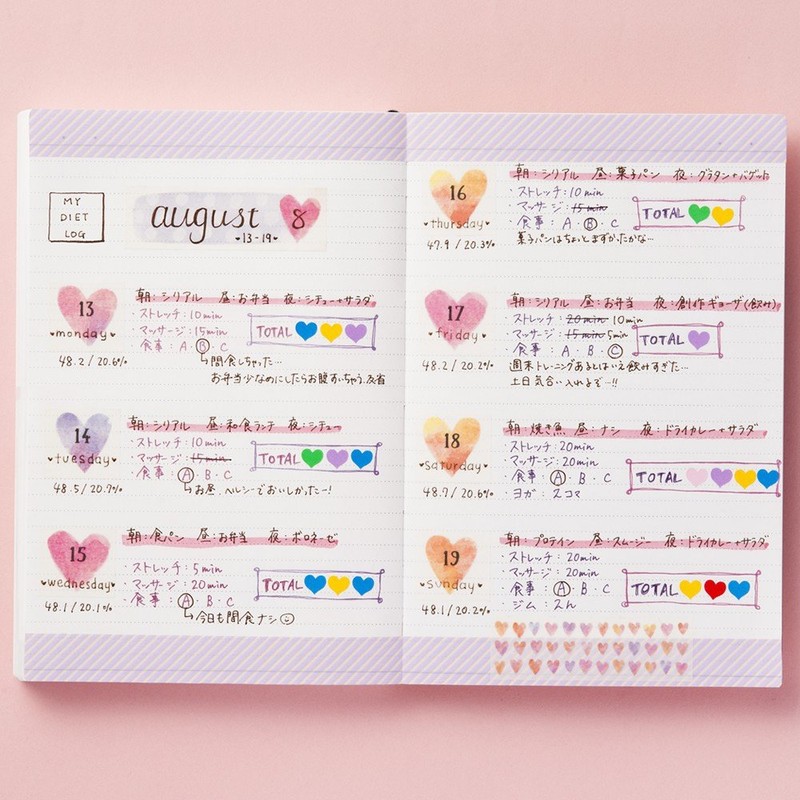 MY
DIET
LOG
august 8
•13-19•
13
monday
48.2 / 20.6%
朝:シリアル 昼:お弁当 夜:シチュー+サラダ
・ストレッチ:10min
・マッサージ:15min
・食事:A・B・C
間食しちゃった…
お弁当少なめにしたらお腹すいちゃう。反省
TOTAL
14
tuesday
48.5 / 20.7%
朝:シリアル 昼:和食ランチ 夜:シチュー
・ストレッチ:10min
・マッサージ:15min
・食事:A・B・C
お昼、ヘルシーでおいしかったー!
TOTAL
15
wednesday
48.1 / 20.1%
朝:食パン 昼:お弁当 夜:ボロネーゼ
・ストレッチ:5min
・マッサージ:20min
・食事:A・B・C
今日も間食ナシ
TOTAL
16
thursday
47.9 / 20.3%
朝:シリアル 昼:菓子パン 夜:グラタン+バゲット
・ストレッチ:10min
・マッサージ:15min
・食事:A・B・C
菓子パンはちょいとまずかったかな…
TOTAL
17
friday
48.2 / 20.2%
朝:シリアル 昼:お弁当 夜:創作ギョーザ(飲み)
・ストレッチ:20min 10min
・マッサージ:15min 5min
・食事:A・B・C
週末トレーニングあるとはいえ飲みすぎた…
土日気合い入れよぞ…!!
TOTAL
18
saturday
48.7 / 20.6%
朝:焼き魚 昼:ナシ 夜:ドライカレー+サラダ
・ストレッチ:20min
・マッサージ:20min
・食事:A・B・C
・ヨガ:スコマ
TOTAL
19
sunday
48.1 / 20.2%
朝:プロテイン 昼:スムージー 夜:ドライカレー+サラダ
・ストレッチ:20min
・マッサージ:20min
・食事:A・B・C
・ジム:スん
TOTAL